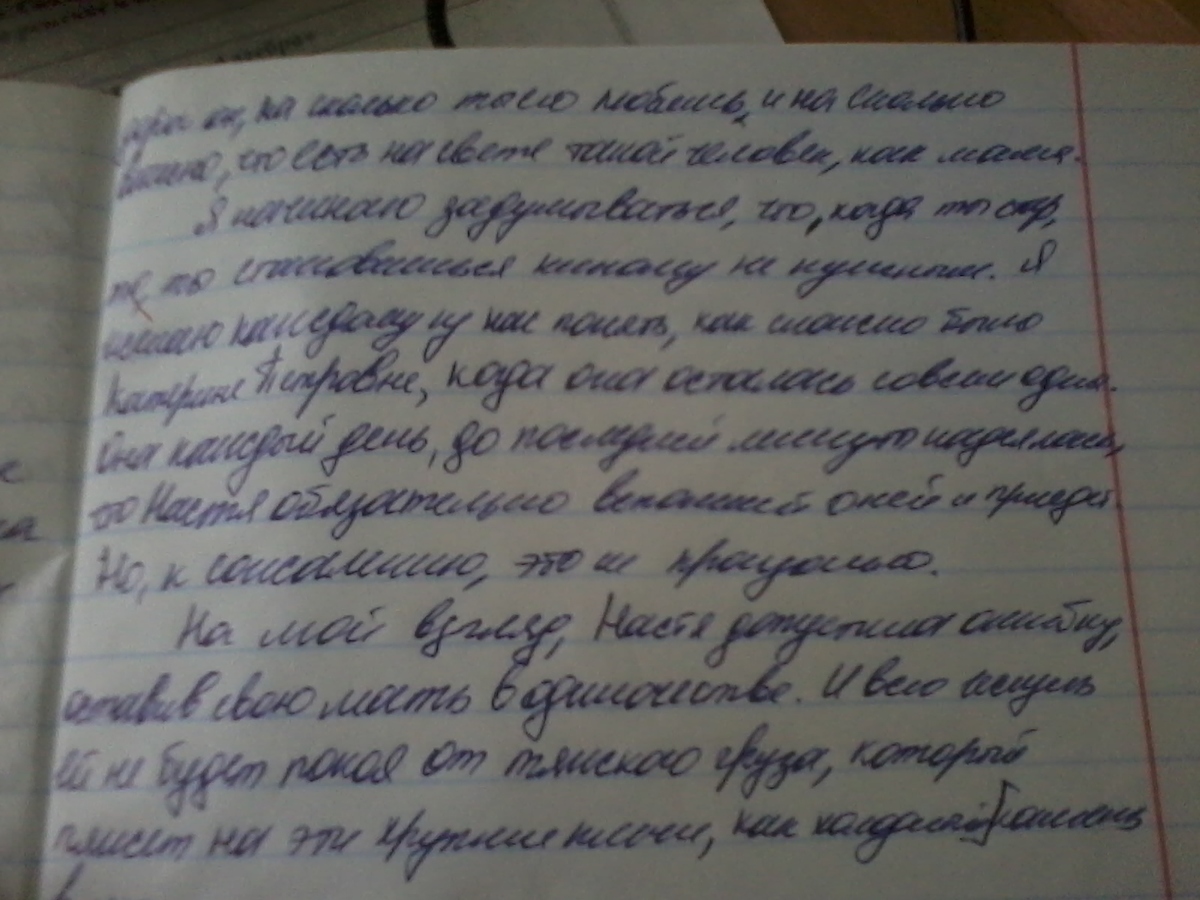 он, на сколько ты его любишь, и на сколько
важно, что есть на свете такой человек, как мама.
Я начинаю задумываться, что, когда ты
то ты становишься никому не нужным. Я
желаю каждому из нас понять, как сложно было
Катерине Петровне, когда она осталась совсем одна.
Она каждый день, до последней минуты надеялась,
что Настя обязательно вспомнит о ней и приедет.
Но, к сожалению, это не произошло.
На мой взгляд, Настя допустила ошибку,
оставив свою мать в одиночестве. И всю жизнь
ей не будет покоя от тяжского груза, который
ляжет на эти хрупкие плечи, как холодный камень